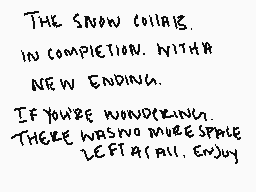 THE SNOW COllAB.
IN COMPlETION. WITH A
NEW ENDING.
IF YOU'RE WONDERING.
THERE WAS NO MORE SPACE
LEFT AT All. ENJOY